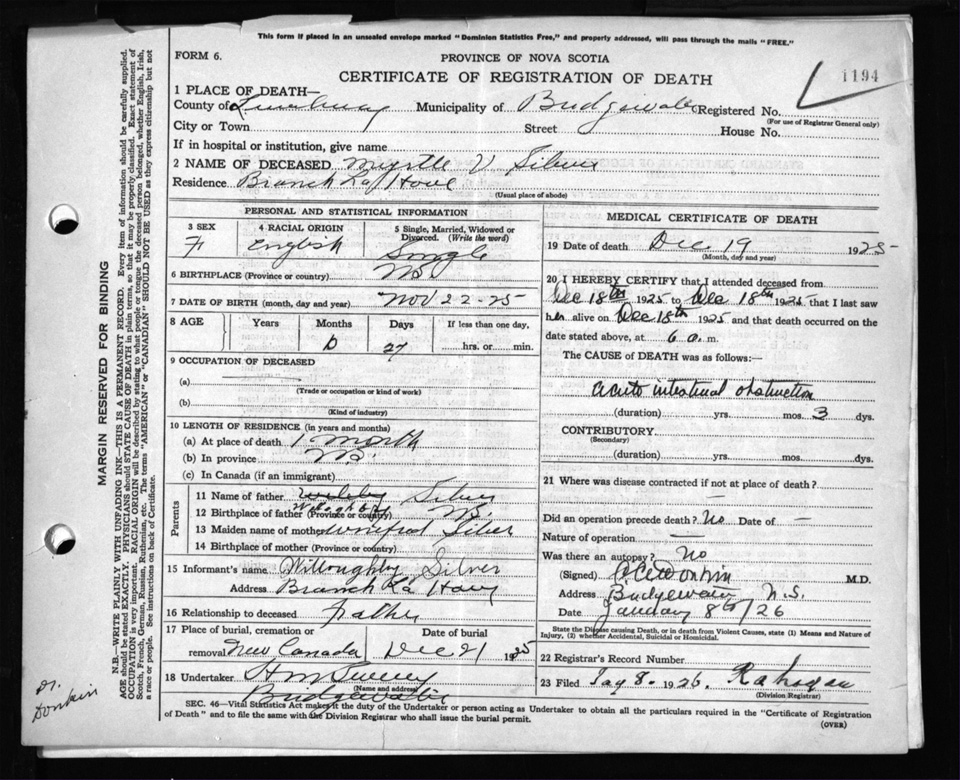 This form if placed in an unsealed envelope marked "Dominion Statistics Free," and properly addressed, will pass through the mails "FREE."
FORM 6.
PROVINCE OF NOVA SCOTIA
CERTIFICATE OF REGISTRATION OF DEATH
1194
1 PLACE OF DEATH—
County of Lunenburg Municipality of Bridgewater Registered No.
(For use of Registrar General only)
City or Town Street House No.
If in hospital or institution, give name
2 NAME OF DECEASED Myrtle V Silver
Residence Branch La Have
(Usual place of abode)
PERSONAL AND STATISTICAL INFORMATION
3 SEX 4 RACIAL ORIGIN 5 Single, Married, Widowed or Divorced. (Write the word)
F English Single
6 BIRTHPLACE (Province or country) N.S.
7 DATE OF BIRTH (month, day and year) Nov 22-25
8 AGE Years Months Days If less than one day,
0 27 hrs. or min.
9 OCCUPATION OF DECEASED
(a)
(Trade or occupation or kind of work)
(b)
(Kind of industry)
10 LENGTH OF RESIDENCE (in years and months)
(a) At place of death 1 month
(b) In province N.S.
(c) In Canada (if an immigrant)
Parents
11 Name of father Silver
Willoughby
12 Birthplace of father (Province or country) N.S.
13 Maiden name of mother Winifred Silver
14 Birthplace of mother (Province or country)
15 Informant's name Willoughby Silver
Address Branch La Have
16 Relationship to deceased Father
17 Place of burial, cremation or removal New Canada Date of burial Dec 21 1925
18 Undertaker
(Name and address)
Bridgewater
MEDICAL CERTIFICATE OF DEATH
19 Date of death Dec. 19 1925
(Month, day and year)
20 I HEREBY CERTIFY that I attended deceased from
Dec 18th 1925 to Dec 18th 1925 that I last saw
her alive on Dec 18th 1925 and that death occurred on the
date stated above, at 6 a.m.
The CAUSE of DEATH was as follows:—
Acute intestinal obstruction
(duration) yrs. mos. 3 dys.
CONTRIBUTORY
(Secondary)
(duration) yrs. mos. dys.
21 Where was disease contracted if not at place of death?
—
Did an operation precede death? No Date of —
Nature of operation —
Was there an autopsy? No
(Signed) Donkin M.D.
Address Bridgewater N.S.
Date January 8th/26
State the Disease causing Death, or in death from Violent Causes, state (1) Means and Nature of Injury, (2) whether Accidental, Suicidal or Homicidal.
22 Registrar's Record Number
23 Filed Jan 8. 1926.
(Division Registrar)
SEC. 46—Vital Statistics Act makes it the duty of the Undertaker or person acting as Undertaker to obtain all the particulars required in the "Certificate of Registration
of Death" and to file the same with the Division Registrar who shall issue the burial permit.
(OVER)
MARGIN RESERVED FOR BINDING
N.B.—WRITE PLAINLY WITH UNFADING INK—THIS IS A PERMANENT RECORD. Every item of information should be carefully supplied.
AGE should be stated EXACTLY. PHYSICIANS should STATE CAUSE OF DEATH in plain terms, so that it may be properly classified. Exact statement of
OCCUPATION is very important. RACIAL ORIGIN will be described by stating to what people or tongue the deceased person belonged, whether English, Irish,
Scotch, French, German, Russian, Ruthenian, etc. The terms "AMERICAN" or "CANADIAN" SHOULD NOT BE USED as they express citizenship but not
a race or people. See instructions on back of Certificate.
Dr.
Donkin